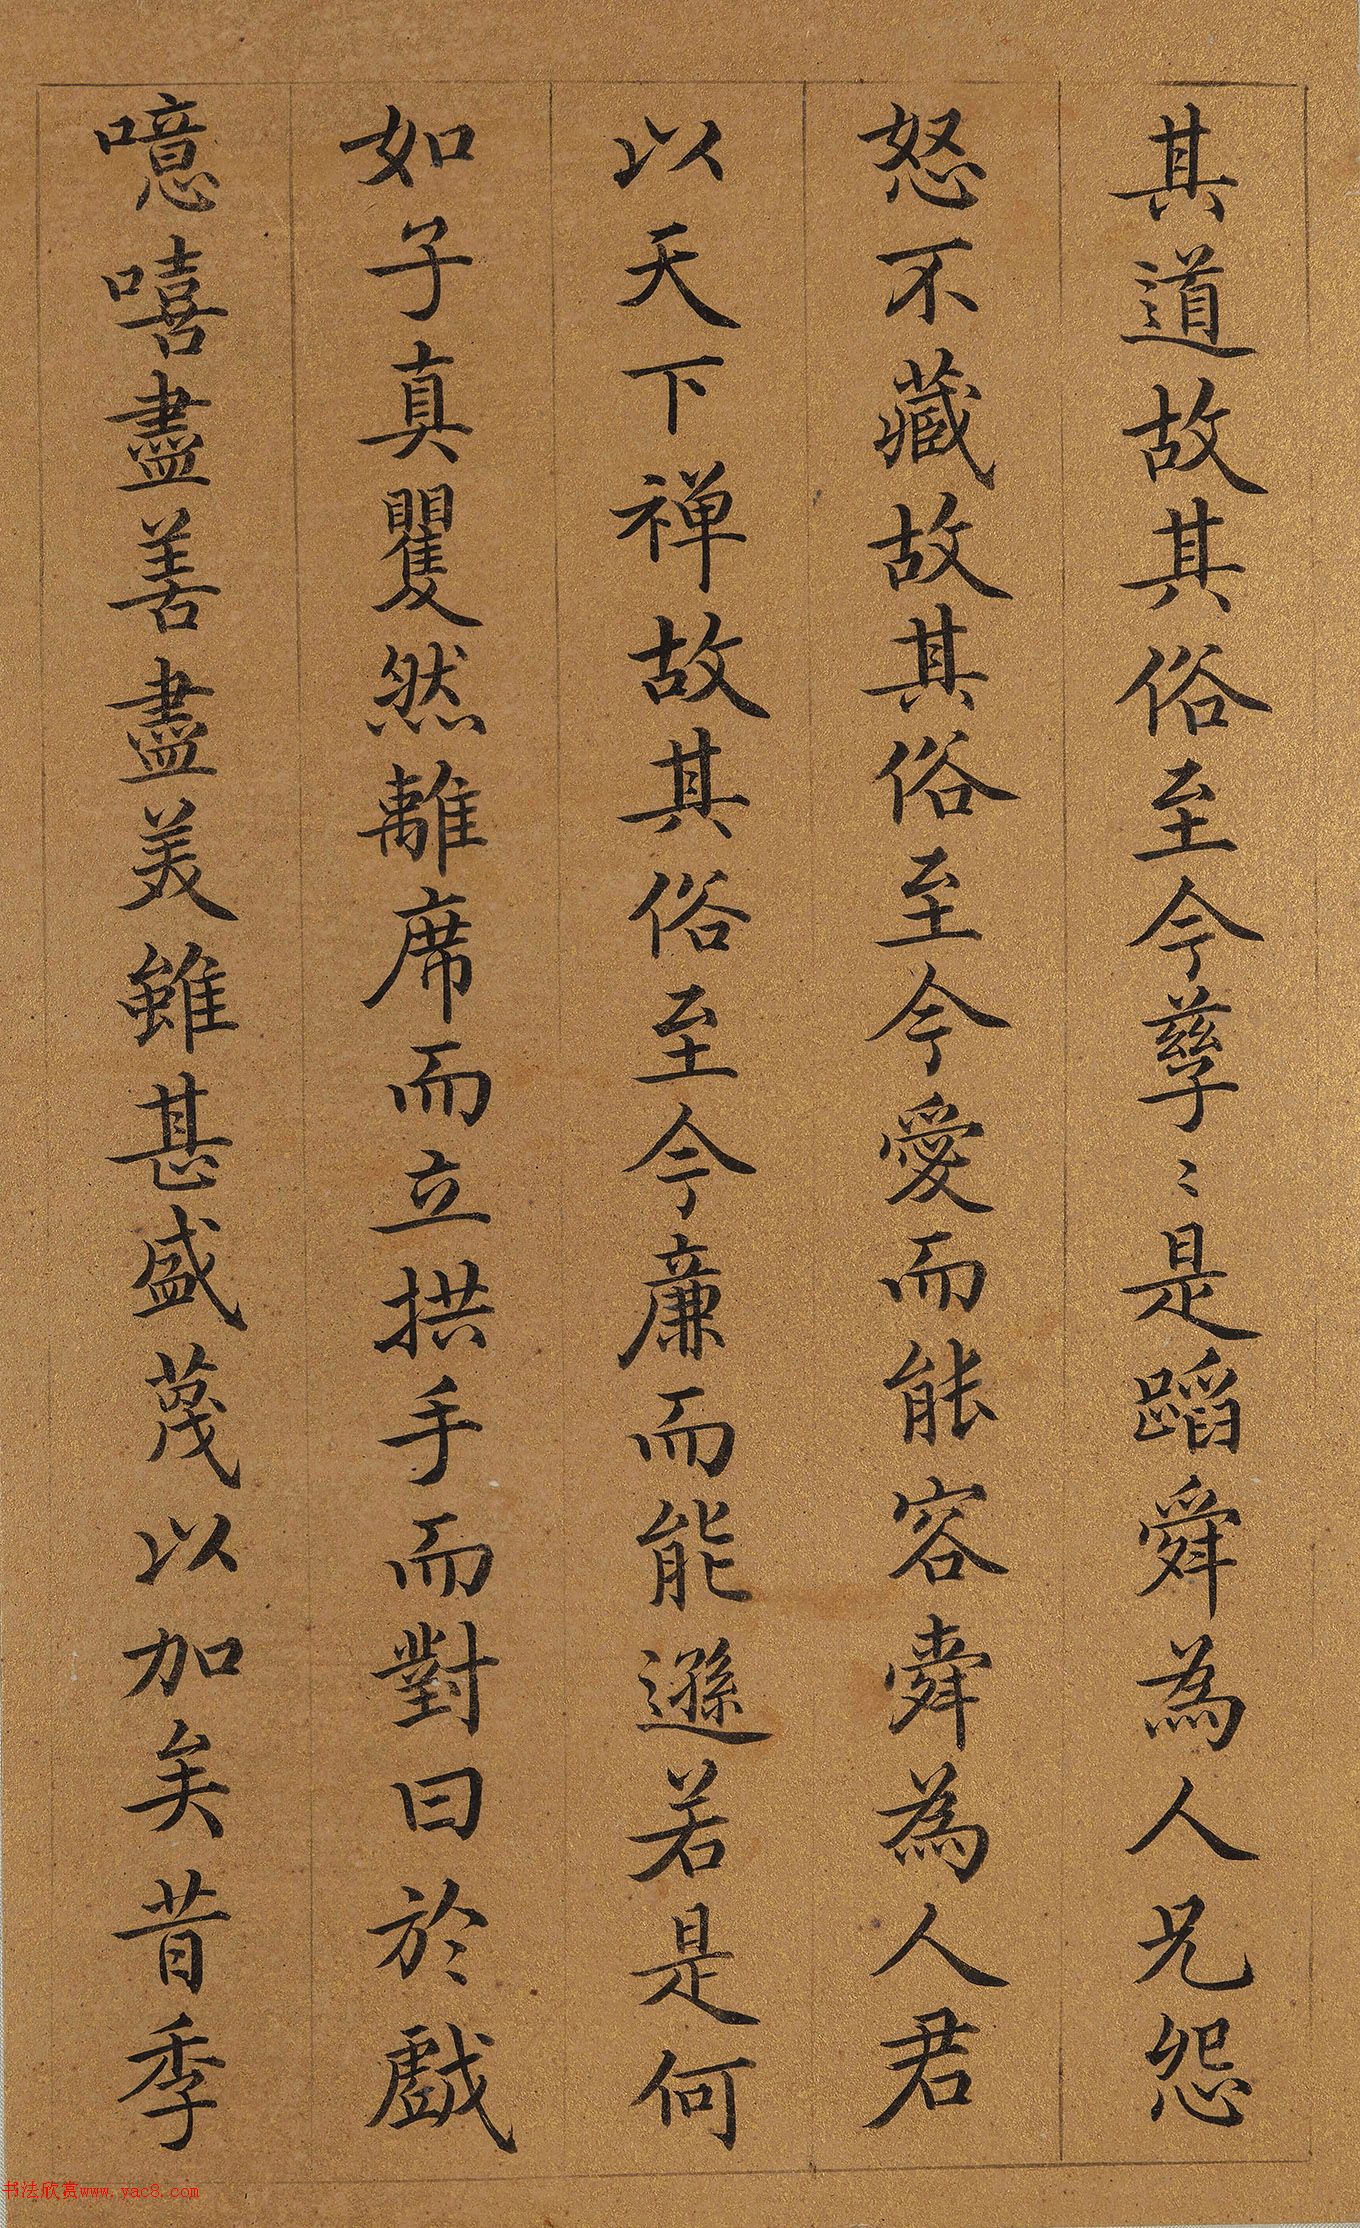 其道故其俗至今孳〻是蹈舜為人兄怨
怒不藏故其俗至今愛而能容舜為人君
以天下禅故其俗至今廉而能遜若是何
如子真矍然離席而立拱手而對曰於戲
噫嘻盡善盡美雖甚盛茂以加矣昔季
书法欣赏www.yac8.com